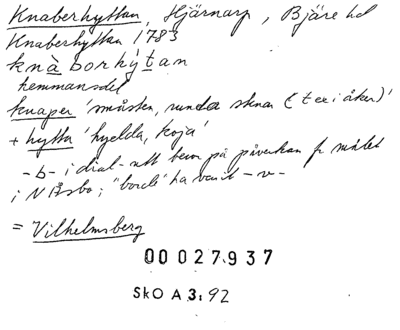 Knaberhyttan, Hjärnarp, Bjäre hd
Knaberhyttan 1783
knàborhýtan
hemmansdel
knaper 'småsten, runda stenar (t ex i åker)'
+ hytta 'hydda, koja'
-b- i dial. utt beror på påverkan fr målet
i N Åsbo; "borde" ha varit -v-
= Vilhelmsberg
00 027937
SkO A 3:92